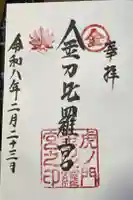 奉拝
㊎
金刀比羅宮
虎ノ門
金刀比羅
宮之印
令和八年二月二十三日